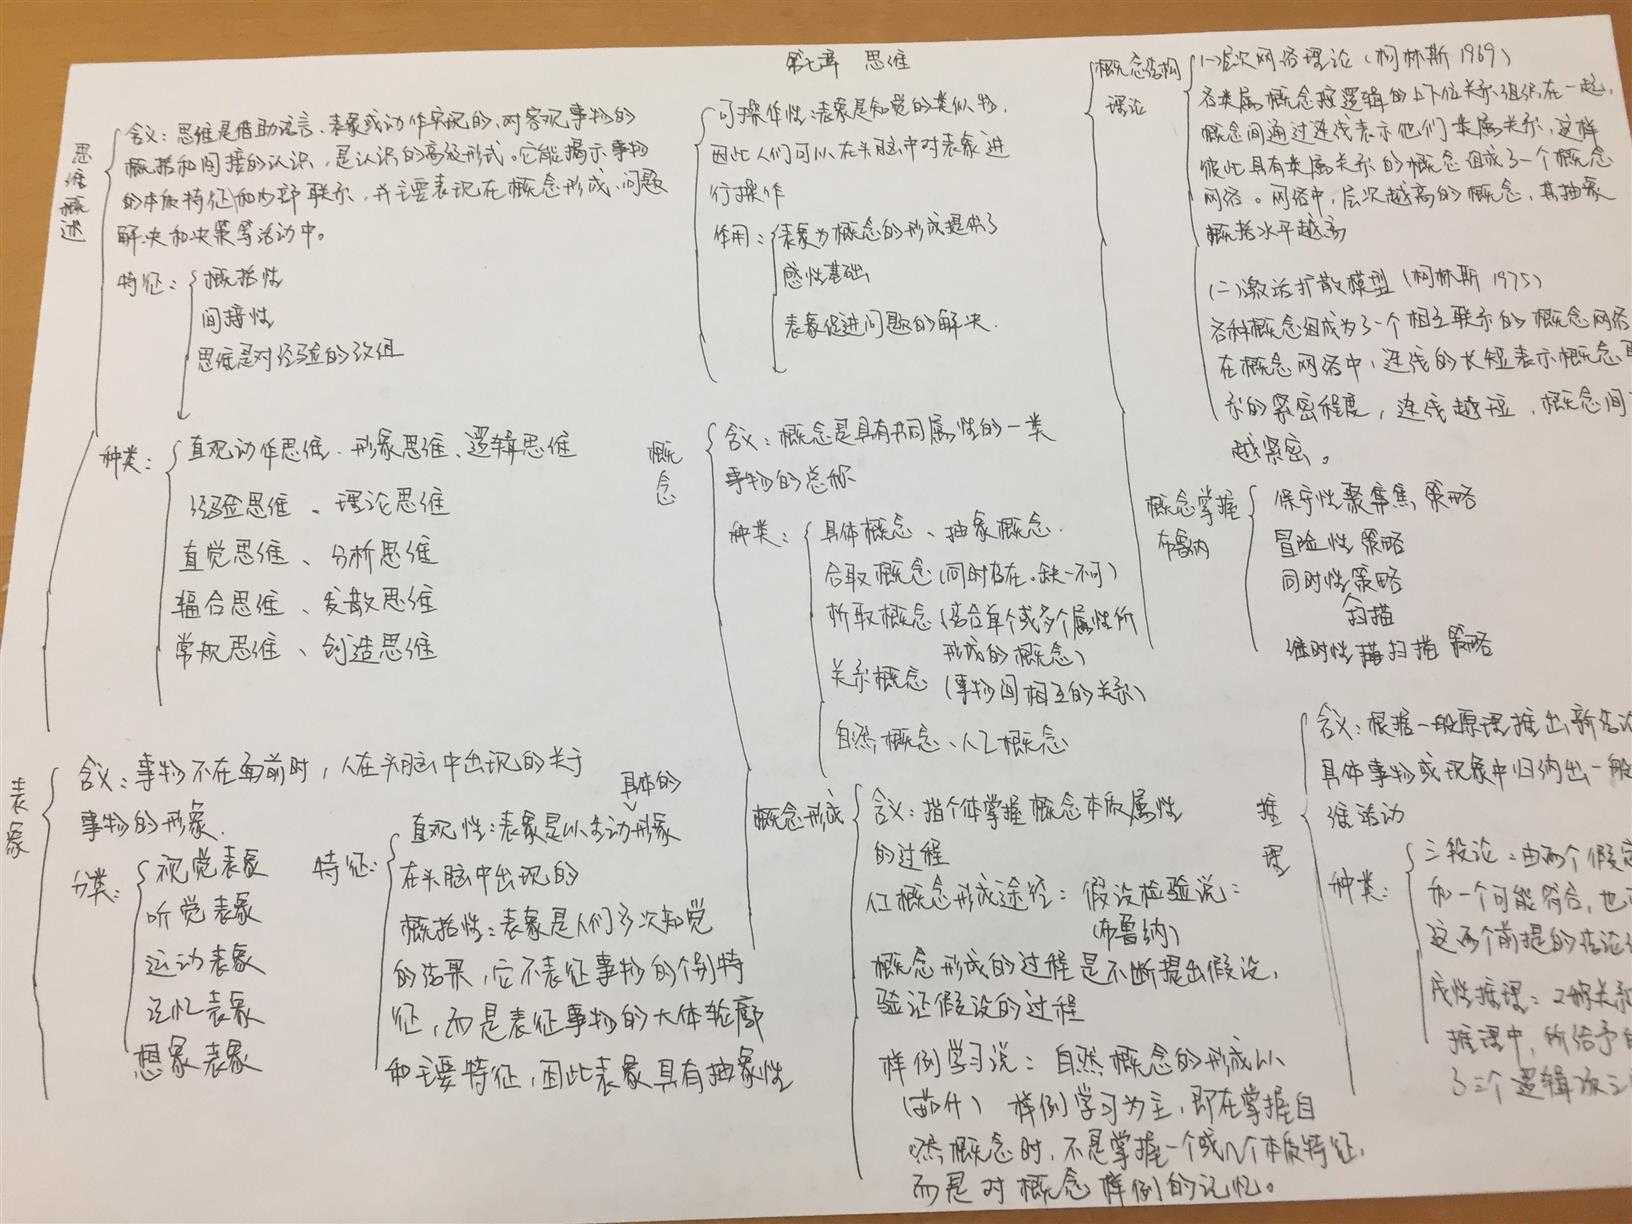 第七章 思维
思维概述
含义：思维是借助语言、表象或动作实现的、对客观事物的
概括和间接的认识，是认识的高级形式。它能揭示事物
的本质特征和内部联系，并主要表现在概念形成、问题
解决和决策等活动中。
特征：概括性
间接性
思维是对经验的改组
种类：直观动作思维、形象思维、逻辑思维
经验思维、理论思维
直觉思维、分析思维
辐合思维、发散思维
常规思维、创造思维
表象
含义：事物不在面前时，人在头脑中出现的关于
事物的形象.
分类：视觉表象
听觉表象
运动表象
记忆表象
想象表象
具体的
特征：直观性：表象是以生动形象
在头脑中出现的
概括性：表象是人们多次知觉
的结果，它不表征事物的个别特
征，而是表征事物的大体轮廓
和主要特征，因此表象具有抽象性
可操作性：表象是知觉的类似物.
因此人们可以在头脑中对表象进
行操作
作用：表象为概念的形成提供了
感性基础
表象促进问题的解决.
概念
含义：概念是具有共同属性的一类
事物的总称
种类：具体概念、抽象概念.
合取概念(同时存在。缺一不可)
析取概念(结合单个或多个属性所
形成的概念)
关系概念(事物间相互的关系)
自然概念、人工概念
概念形成
含义：指个体掌握概念本质属性
的过程
概念形成途径：假设检验说：
(布鲁纳)
概念形成的过程是不断提出假设，
验证假设的过程
样例学习说：自然概念的形成以
样例学习为主，即在掌握自
然概念时，不是掌握一个或几个本质特征，
而是对概念样例的记忆。
概念结构
理论
(一)层次网络理论(柯林斯 1969)
各类属概念按逻辑的上下位关系组织在一起，
概念间通过连线表示他们类属关系，这样
彼此具有类属关系的概念组成了一个概念
网络。网络中，层次越高的概念，其抽象
概括水平越高
(二)激活扩散模型(柯林斯 1975)
各种概念组成为了一个相互联系的概念网络
在概念网络中，连线的长短表示概念
系的紧密程度，连线越短，概念间
越紧密。
概念掌握
布鲁纳
保守性聚焦策略
冒险性策略
同时性策略
扫描
继时性扫描策略
推理
含义：根据一般原理推出新结
具体事物或现象中归纳出一般
维活动
种类：三段论：由两个假定
和一个可能符合，也
这两个前提的结论
线性推理：
推理中，所给予
了三个逻辑